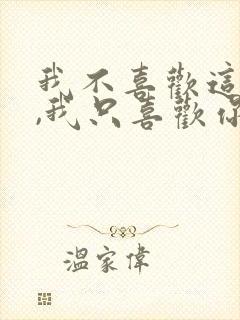 我不喜歡這
,我只喜歡你
溫家偉